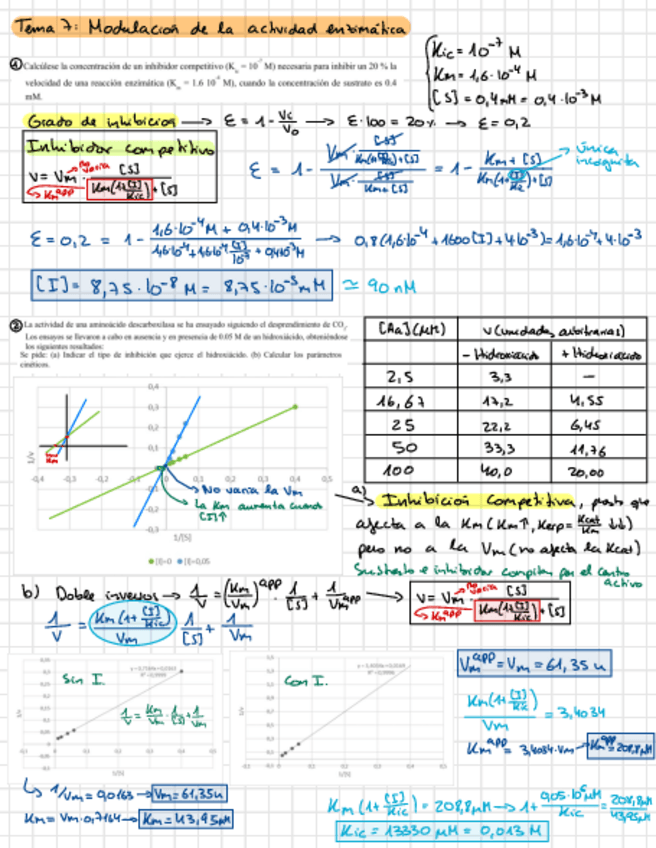 Tema 7: Modulación de la actividad enzimática
① Calcúlese la concentración de un inhibidor competitivo (K = 10⁻⁷ M) necesaria para inhibir un 20 % la
velocidad de una reacción enzimática (K = 1.6 10⁻⁴ M), cuando la concentración de sustrato es 0.4
mM.
Kic = 10⁻⁷ M
Km = 1,6·10⁻⁴ M
[S] = 0,4 mM = 0,4·10⁻³ M
Grado de inhibición → ε = 1 - Vc/V0 → ε·100 = 20% → ε = 0,2
Inhibidor competitivo
No varía
V = Vm · [S] / (Km(1+[I]/Kic) + [S])
Km^app
única
incógnita
[I] = 8,75·10⁻⁸ M = 8,75·10⁻⁵ mM ≃ 90 nM
② La actividad de una aminoácido descarboxilasa se ha ensayado siguiendo el desprendimiento de CO₂.
Los ensayos se llevaron a cabo en ausencia y en presencia de 0.05 M de un hidroxiácido, obteniéndose
los siguientes resultados:
Se pide: (a) Indicar el tipo de inhibición que ejerce el hidroxiácido. (b) Calcular los parámetros
cinéticos.
[Aa] (μM) V (unidades arbitrarias)
- Hidroxiácido + Hidroxiácido
2,5 3,3 -
16,67 17,2 4,55
25 22,2 6,45
50 33,3 11,76
100 40,0 20,00
0,4
0,3
0,2
0,1
-0,4 -0,3 -0,2 -0,1 0 0,1 0,2 0,3 0,4 0,5
-0,1
-0,2
-0,3
1/v
1/[S]
No varía la Vm
La Km aumenta cuando
[I]↑
[I]=0 [I]=0,05
a) Inhibición competitiva, puesto que
afecta a la Km (Km↑, Kesp = Kcat/Km ↓)
pero no a la Vm (no afecta la Kcat)
Sustrato e inhibidor compiten por el centro
activo
b) Dobles inversos → 1/V = (Km/Vm)^app · 1/[S] + 1/Vm^app →
No varía
V = Vm · [S] / (Km(1+[I]/Kic) + [S])
Km^app
1/V = Km(1+[I]/Kic)/Vm · 1/[S] + 1/Vm
Sin I.
1/V = Km/Vm · 1/[S] + 1/Vm
1/[S]
Con I.
1/[S]
Vm^app = Vm = 61,35 u
Km(1+[I]/Kic)/Vm = 3,4034
Km^app = 3,4034·Vm → Km^app = 208,8 μM
↳ 1/Vm = 0,0163 → Vm = 61,35 u
Km = Vm·0,7164 → Km = 43,95 μM
Km(1+[I]/Kic) = 208,8 μM → 1 + 0,05·10⁶ μM/Kic = 208,8 μM/43,95 μM
Kic = 13330 μM = 0,013 M